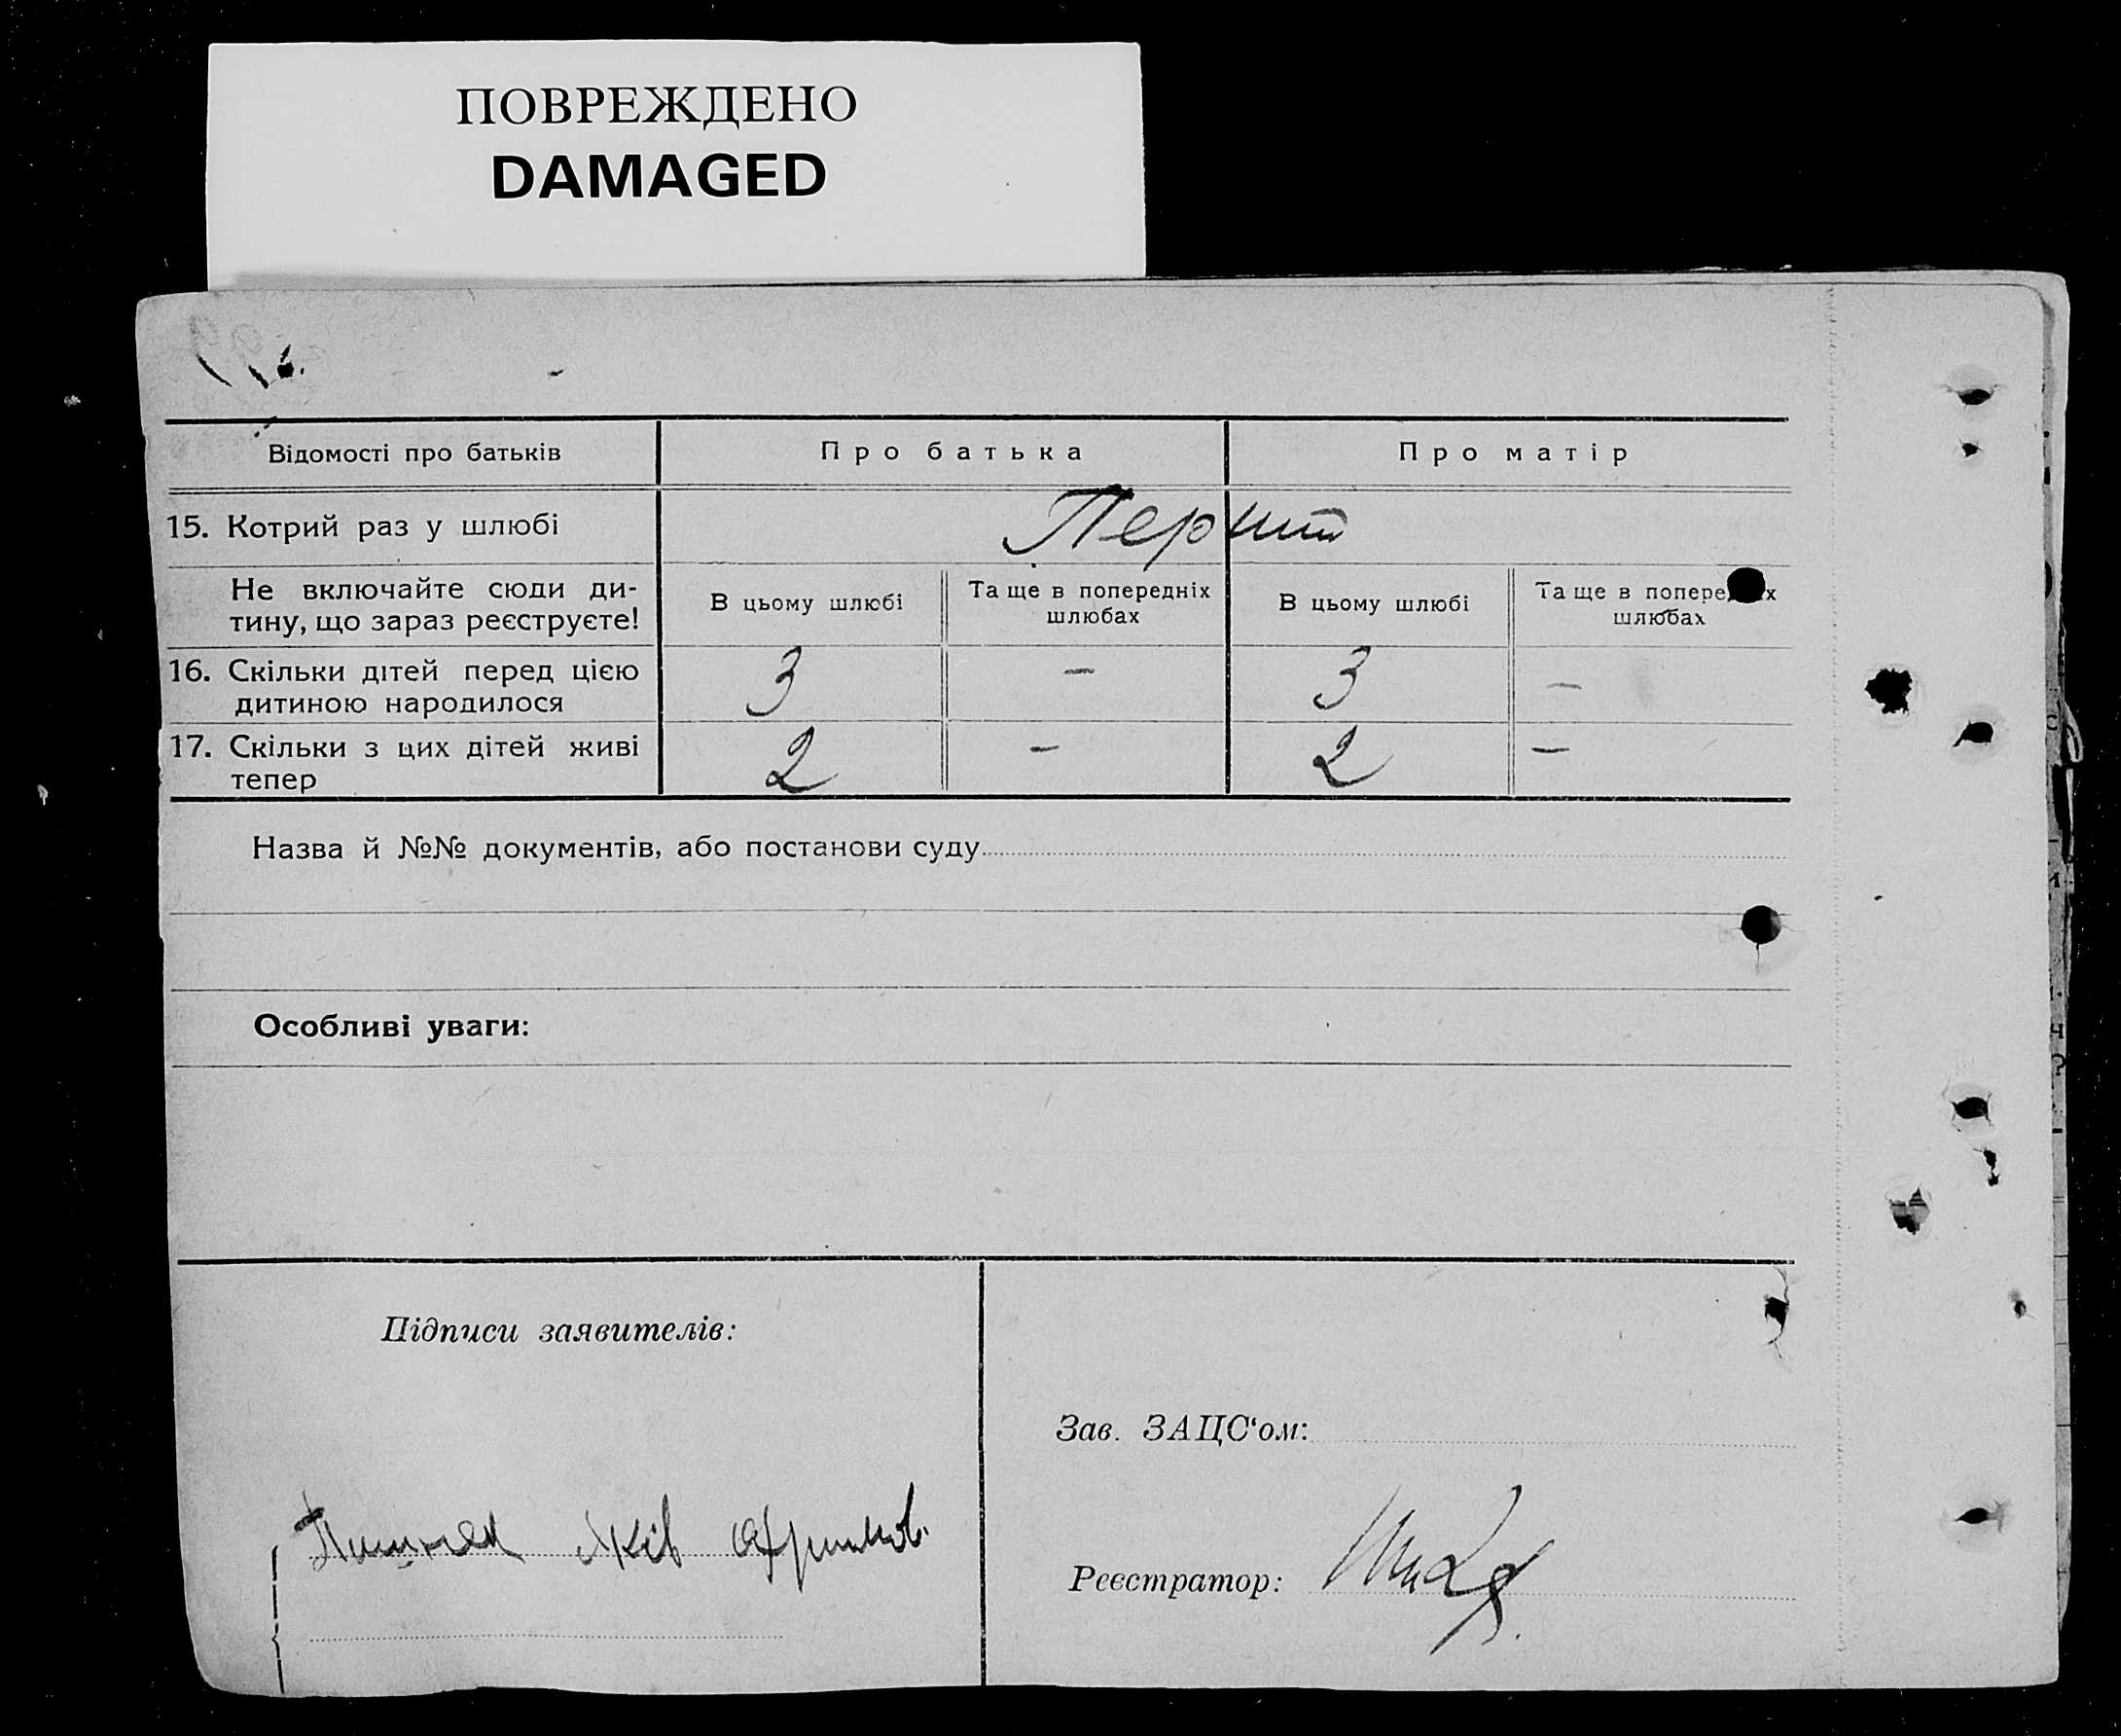 ПОВРЕЖДЕНО
DAMAGED
Відомості про батьків
Про батька
Про матір
15. Котрий раз у шлюбі
Перший
Не включайте сюди ди-
тину, що зараз реєструєте!
В цьому шлюбі
Та ще в попередніх
шлюбах
В цьому шлюбі
Та ще в
шлюбах
16. Скільки дітей перед цією
дитиною народилося
3
—
3
—
17. Скільки з цих дітей живі
тепер
2
—
2
—
Назва й №№ документів, або постанови суду
Особливі уваги:
Підписи заявителів:
Зав. ЗАЦС‘ом:
Яків
Реєстратор: